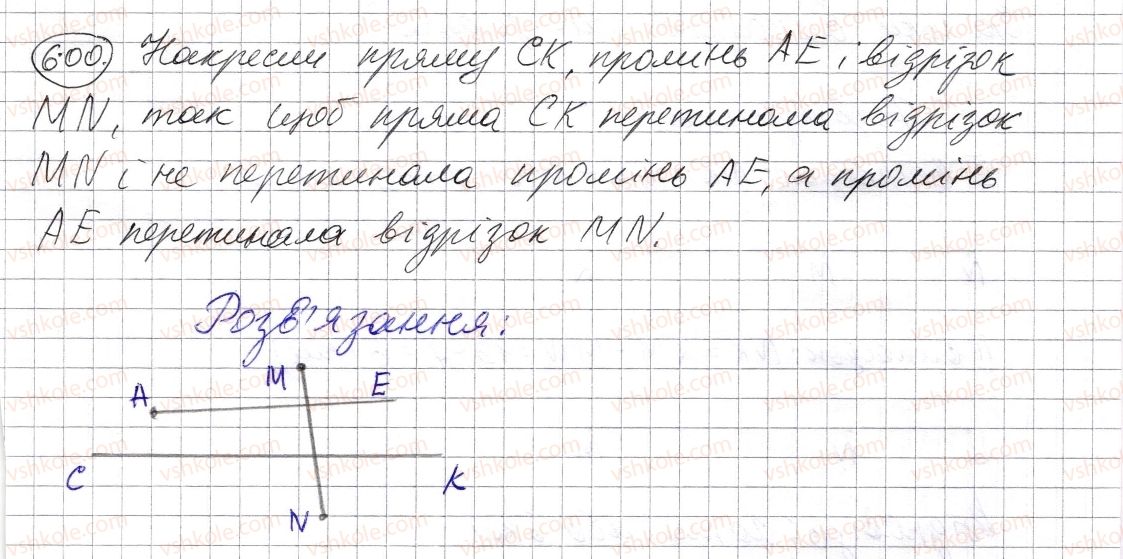 600. Накресли пряму СК, промінь АЕ і відрізок
MN, так щоб пряма СК перетинала відрізок
MN і не перетинала промінь АЕ, а промінь
АЕ перетинала відрізок MN.
Розв'язання:
M E
A
C K
N
vshkole.com